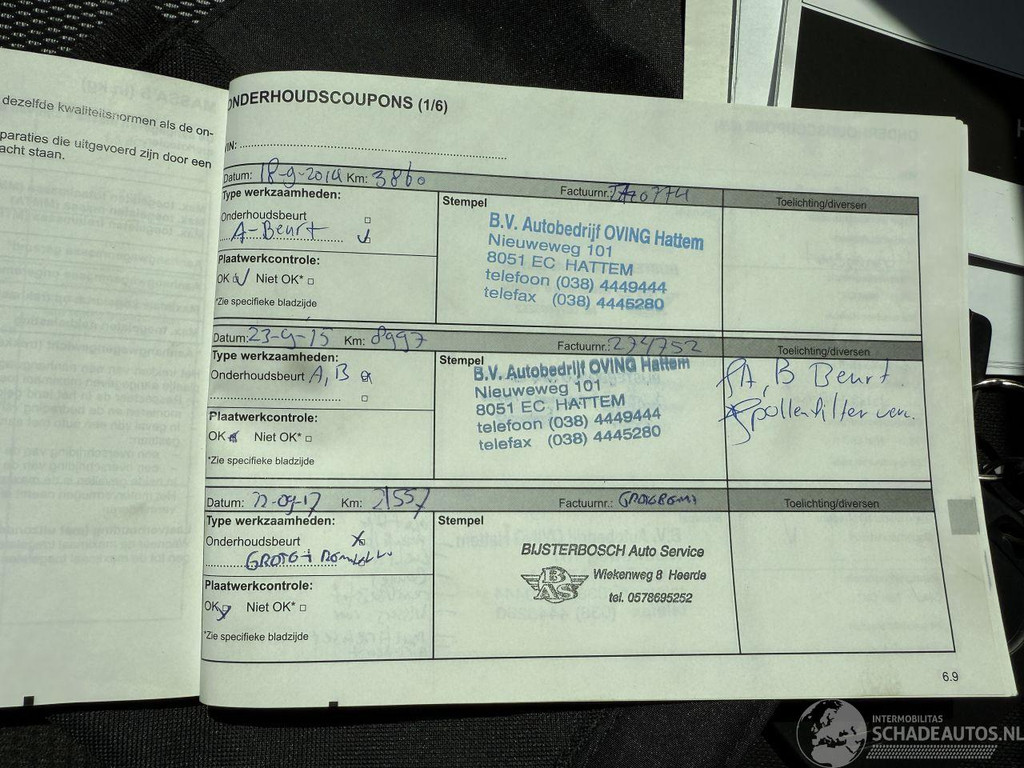 dezelfde kwaliteitsnormen als de on-
paraties die uitgevoerd zijn door een
acht staan.
ONDERHOUDSCOUPONS (1/6)
VIN:
Datum: 18-9-2014 Km: 3860 Factuurnr.: Toelichting/diversen
Type werkzaamheden:
Stempel
Onderhoudsbeurt
A-Beurt
B.V. Autobedrijf OVING Hattem
Nieuweweg 101
8051 EC HATTEM
telefoon (038) 4449444
telefax (038) 4445280
Plaatwerkcontrole:
OK Niet OK*
*Zie specifieke bladzijde
Datum: 23-9-15 Km: 8997 Factuurnr.: 274752 Toelichting/diversen
Type werkzaamheden:
Stempel
Onderhoudsbeurt A, B
B.V. Autobedrijf OVING Hattem
Nieuweweg 101
8051 EC HATTEM
telefoon (038) 4449444
telefax (038) 4445280
A, B Beurt
pollenfilter ver.
Plaatwerkcontrole:
OK Niet OK*
*Zie specifieke bladzijde
Datum: 22-09-17 Km: 21557 Factuurnr.: Toelichting/diversen
Type werkzaamheden:
Stempel
Onderhoudsbeurt
BIJSTERBOSCH Auto Service
BAS
Wiekenweg 8 Heerde
tel. 0578695252
Plaatwerkcontrole:
OK Niet OK*
*Zie specifieke bladzijde
6.9
INTERMOBILITAS
SCHADEAUTOS.NL